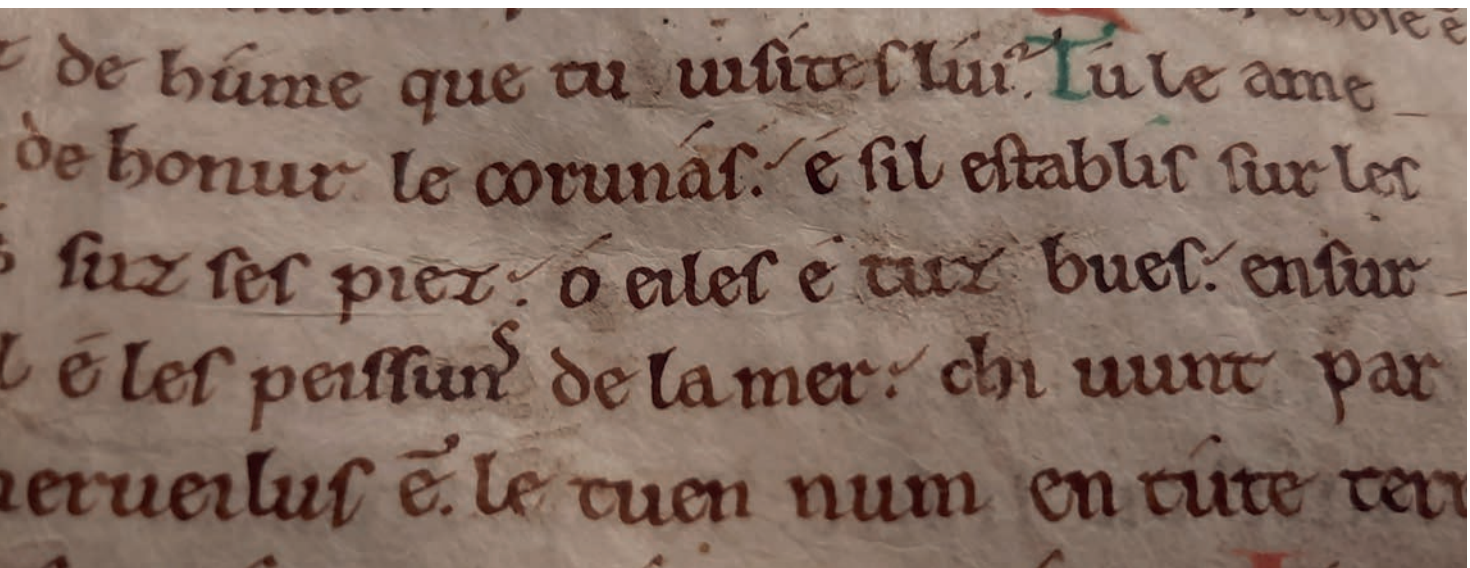 de húme que tu uisites lúi. Tu le ame
de honur le corunás. é sil establis sur les
suz ses piez. ó eiles é tuz bues. ensur
l é les peissuns de la mer. chi uunt par
erueilus ē. le tuen num en túte terr